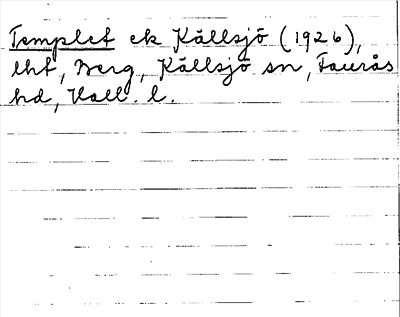 Templet ek Källsjö (1926),
lht, Berg, Källsjö sn, Faurås
hd, Hall. l.